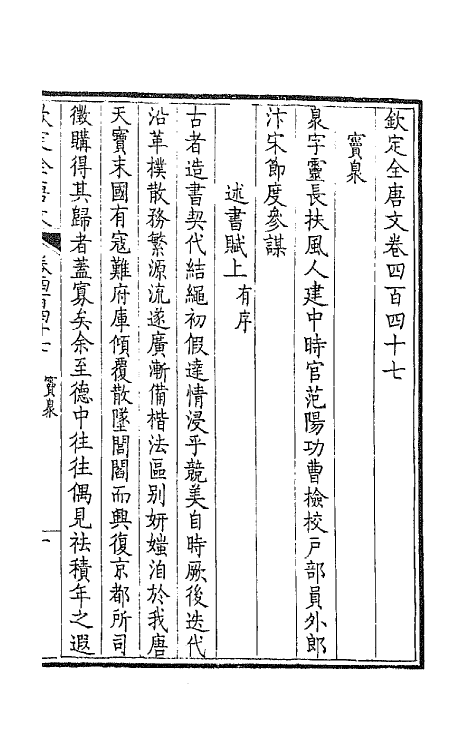 欽定全唐文卷四百四十七
竇臮
臮字靈長扶風人建中時官范陽功曹檢校戶部員外郎
汴宋節度參謀
述書賦上有序
古者造書契代結繩初假達情浸乎競美自時厥後迭代
沿革樸散務繁源流遂廣漸備楷法區別妍媸洎於我唐
天寶末國有寇難府庫傾覆散墜閭閻而興復京都所司
徵購得其歸者蓋寡矣余至德中往往偶見袪積年之遐
欽定全唐文 卷四百四十七 竇臮 一